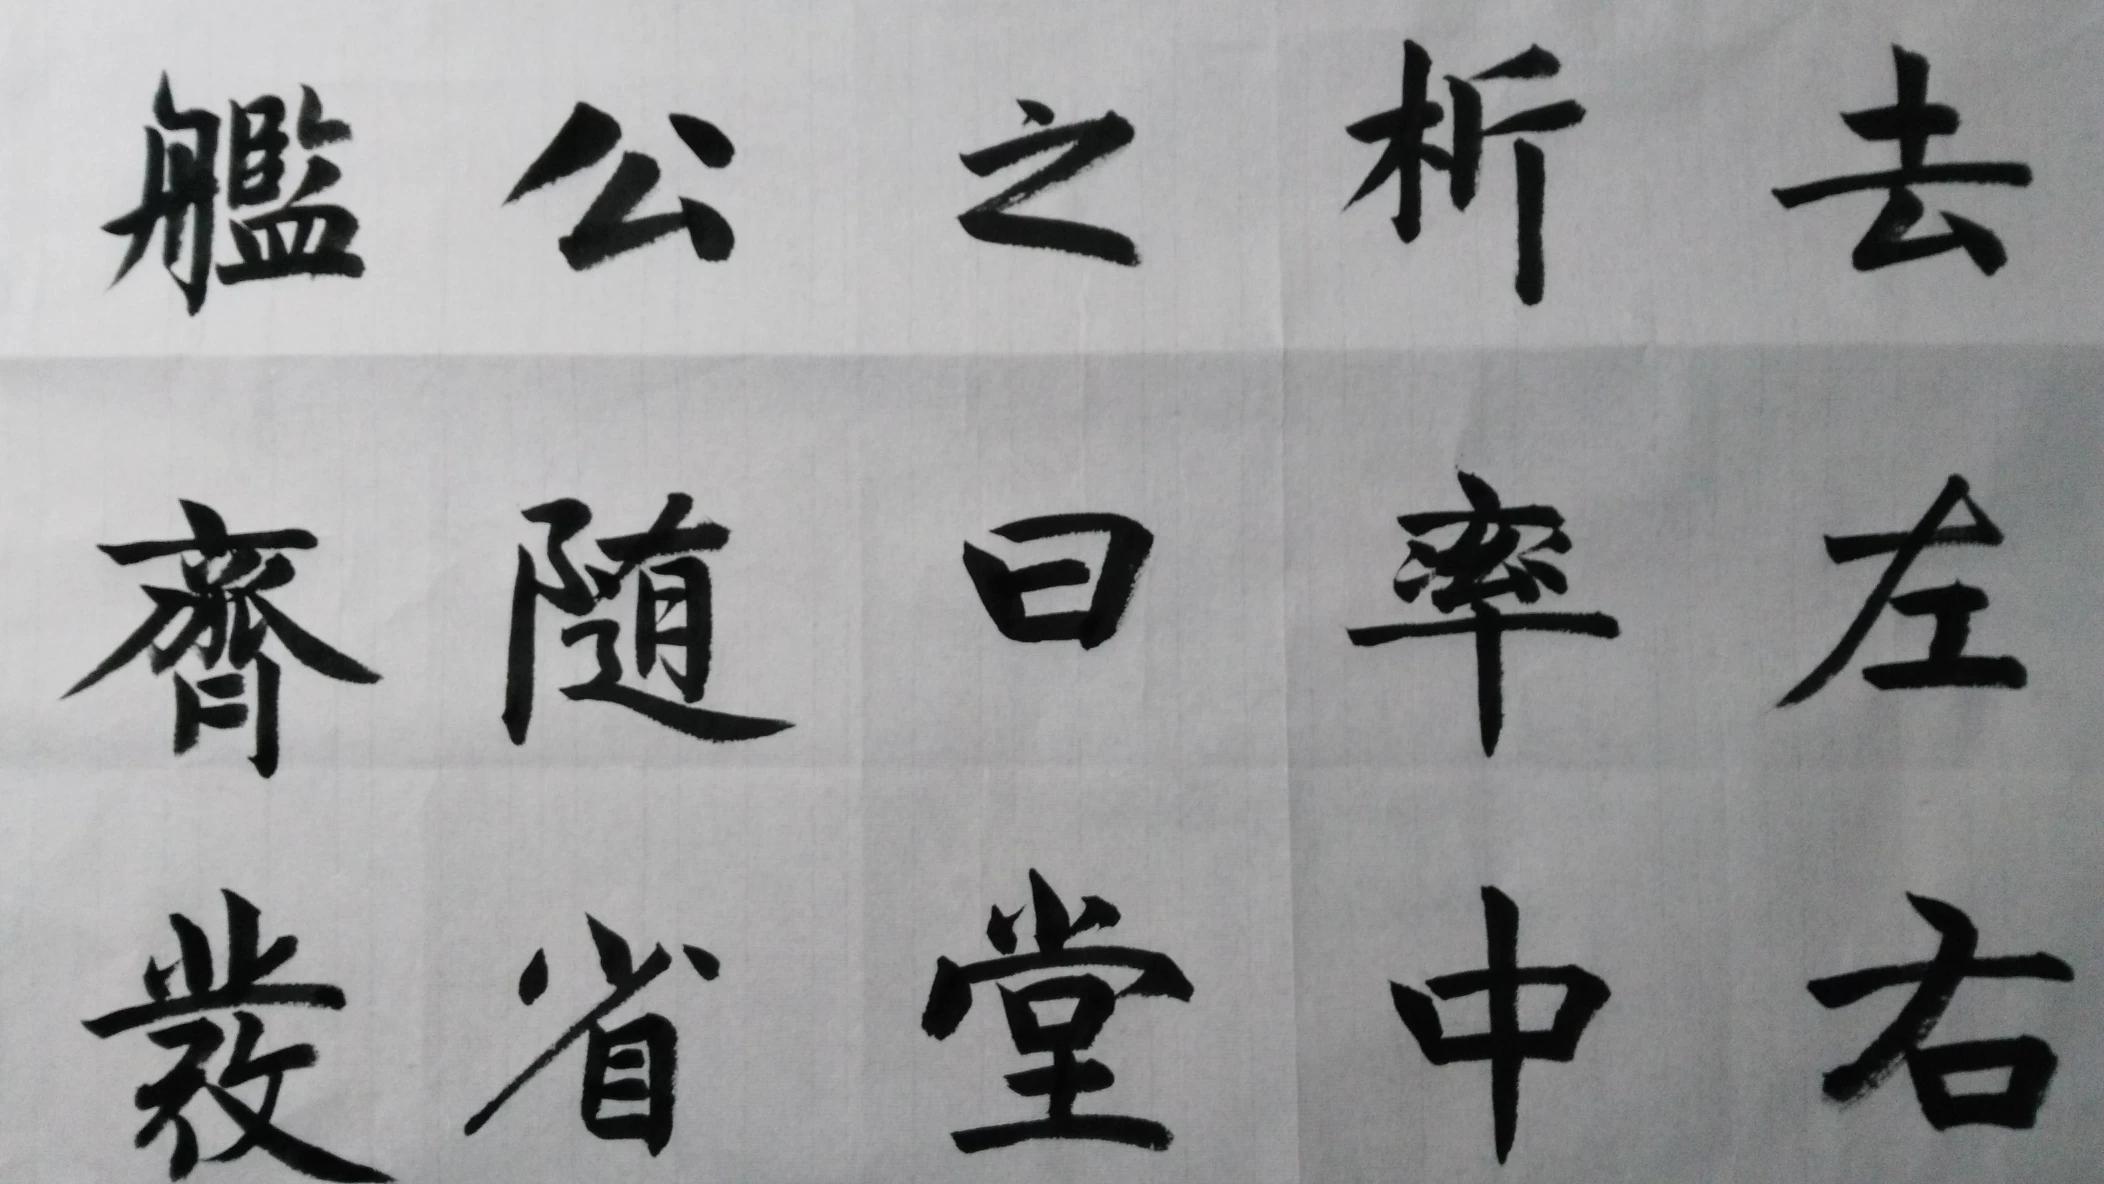 去左右
析率中
之曰堂
公随省
艦齊發